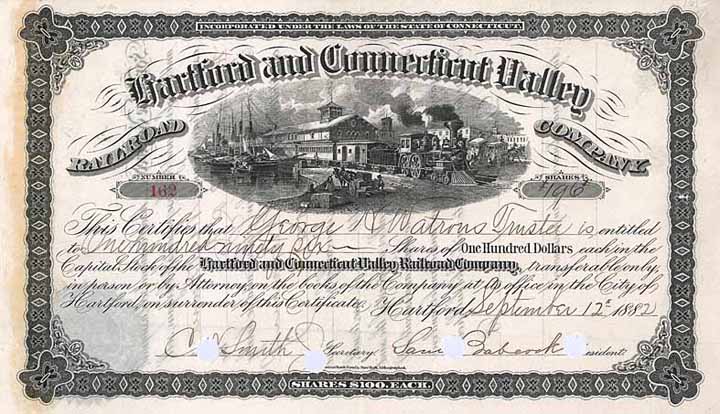 INCORPORATED UNDER THE LAWS OF THE STATE OF CONNECTICUT.
Hartford and Connecticut Valley
RAILROAD COMPANY
NUMBER SHARES
162 196
This Certifies that George H Watrous Trustee is entitled
to One hundred ninety six Shares of One Hundred Dollars each in the
Capital Stock of the Hartford and Connecticut Valley Railroad Company, transferable only,
in person or by Attorney, on the books of the Company at its office in the City of
Hartford, on surrender of this Certificate. Hartford September 12 1882
Smith Secretary. Sam Babcock President.
SHARES $100. EACH.